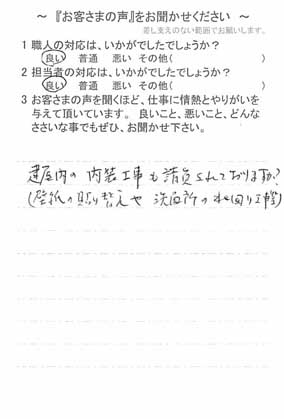 ～ 『お客さまの声』をお聞かせください ～
差し支えのない範囲でお願いします。
1 職人の対応は、いかがでしたでしょうか？
良い 普通 悪い その他( )
2 担当者の対応は、いかがでしたでしょうか？
良い 普通 悪い その他( )
3 お客さまの声を聞くほど、仕事に情熱とやりがいを
与えて頂いています。 良いこと、悪いこと、どんな
ささいな事でもぜひ、お聞かせ下さい。
建屋内の 内装工事も請負されておりますか？
(壁紙の貼り替えや 洗面所の水回り工事)